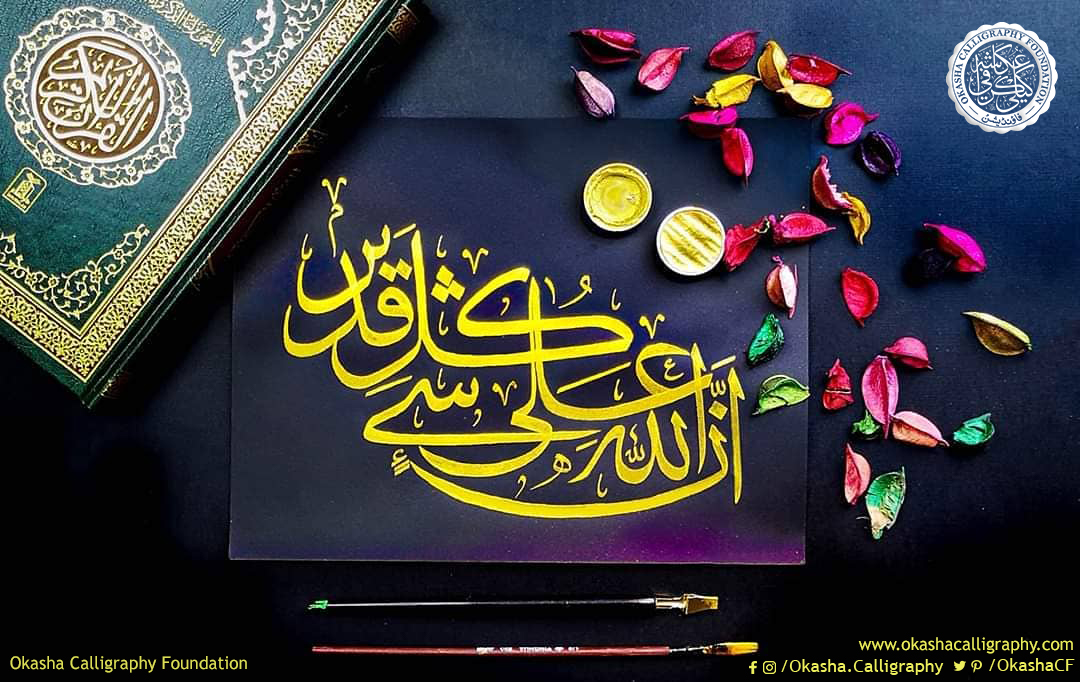 القرآن الكريم
OKASHA CALLIGRAPHY FOUNDATION
عكاشہ
کیلی گرافی
فاؤنڈیشن
إن الله على كل شيء قدير
Okasha Calligraphy Foundation
www.okashacalligraphy.com
/Okasha.Calligraphy /OkashaCF